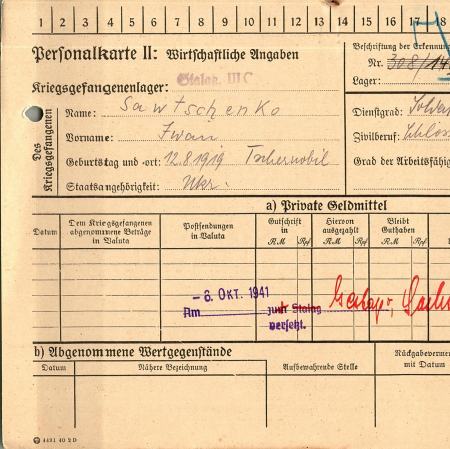 1 2 3 4 5 6 7 8 9 10 11 12 13 14 15 16 17 18
Personalkarte II: Wirtschaftliche Angaben
Beschriftung der Erkennun
Nr. 308/14
Lager:
Kriegsgefangenenlager: Stalag. III C
Des Kriegsgefangenen
Name: Sawtschenko
Vorname: Iwan
Geburtstag und -ort: 12.8.1919 Tschernobil
Staatsangehörigkeit: Ukr.
Dienstgrad: Solda
Zivilberuf: Schloss
Grad der Arbeitsfähig
a) Private Geldmittel
Datum
Dem Kriegsgefangenen abgenommene Beträge in Valuta
Postsendungen in Valuta
Gutschrift in
RM Rpf
Hiervon ausgezahlt
RM Rpf
Bleibt Guthaben
RM Rpf
- 6. OKT. 1941
Am zum Stalag
versetzt.
Gestapo,
b) Abgenommene Wertgegenstände
Datum
Nähere Bezeichnung
Aufbewahrende Stelle
Rückgabeverme
mit Datum
4431 40 2 D